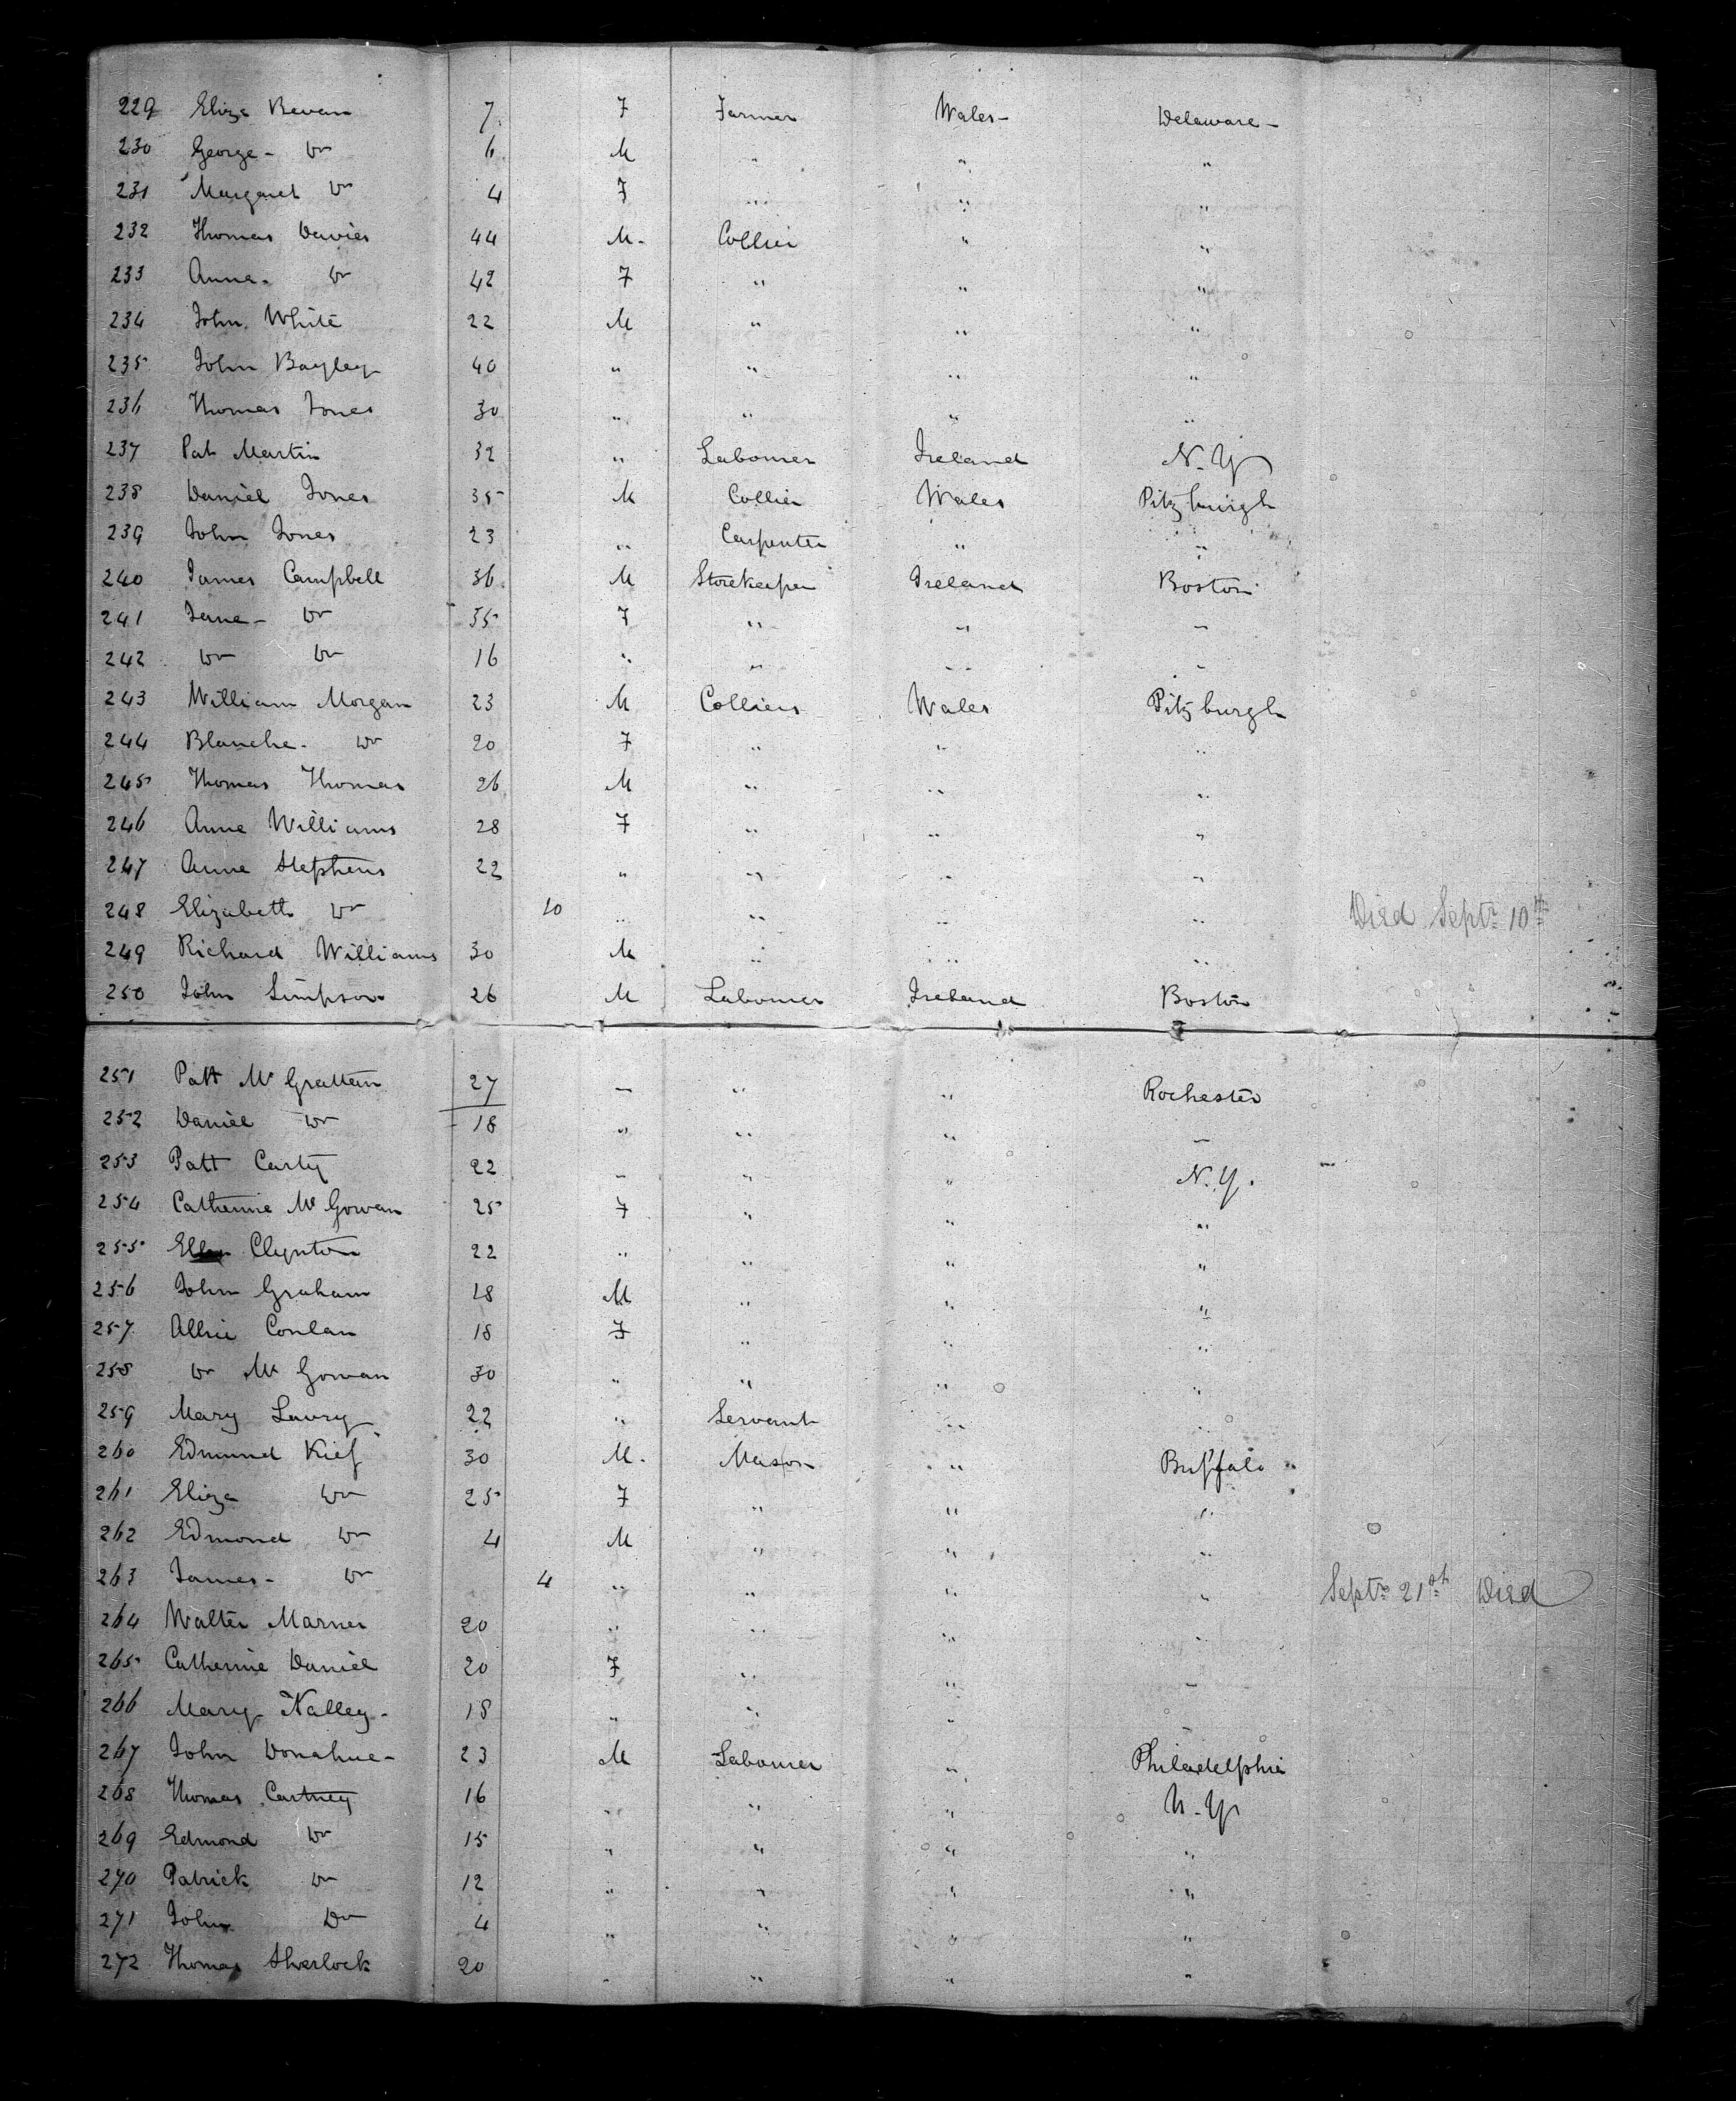 229 Eliza Bevan 7 F Farmer Wales - Delaware -
230 George - Do 6 M " " "
231 Margaret Do 4 F " " "
232 Thomas Davies 44 M - Collier " "
233 Anna - Do 42 F " " "
234 John White 22 M " " "
235 John Bayley 40 " " " "
236 Thomas Jones 30 " " " "
237 Pat Martin 32 " Labourer Ireland N. Y
238 Daniel Jones 35 M Collier Wales Pitzburgh
239 John Jones 23 " Carpenter " "
240 James Campbell 36 M Storekeeper Ireland Boston
241 Jane - Do 35 F " " "
242 Do Do 16 " " " "
243 William Morgan 23 M Colliers Wales Pitzburgh
244 Blanche - Do 20 F " " "
245 Thomas Thomas 26 M " " "
246 Anne Williams 28 F " " "
247 Anne Stephens 22 " " " "
248 Elizabeth Do 10 " " " " Died Septr 10th
249 Richard Williams 30 M " " "
250 John Simpson 26 M Labourer Ireland Boston
251 Patt Mc Grattan 27 - " " Rochester
252 Daniel Do 18 " " " -
253 Patt Carty 22 - " " N. Y.
254 Catherine Mc Gowan 25 F " " "
255 Ellen Clynton 22 " " " "
256 John Graham 18 M " " "
257 Allice Conlan 18 F " " "
258 Do Mc Gowan 30 " " " "
259 Mary Lavry 22 " Servant " "
260 Edmund Kief 30 M - Mason " Buffalo
261 Eliza Do 25 F " " "
262 Edmond Do 4 M " " "
263 James - Do 4 " " " " Septr 21st Died
264 Walter Marner 20 " " " "
265 Catherine Daniel 20 F " " -
266 Mary Nalley - 18 " " " -
267 John Donahue - 23 M Labourer " Philadelphia
268 Thomas Cartney 16 " " " N - Y
269 Edmond Do 15 " " " "
270 Patrick Do 12 " " " "
271 John Do 4 " " " "
272 Thomas Sherlock 20 " " " "